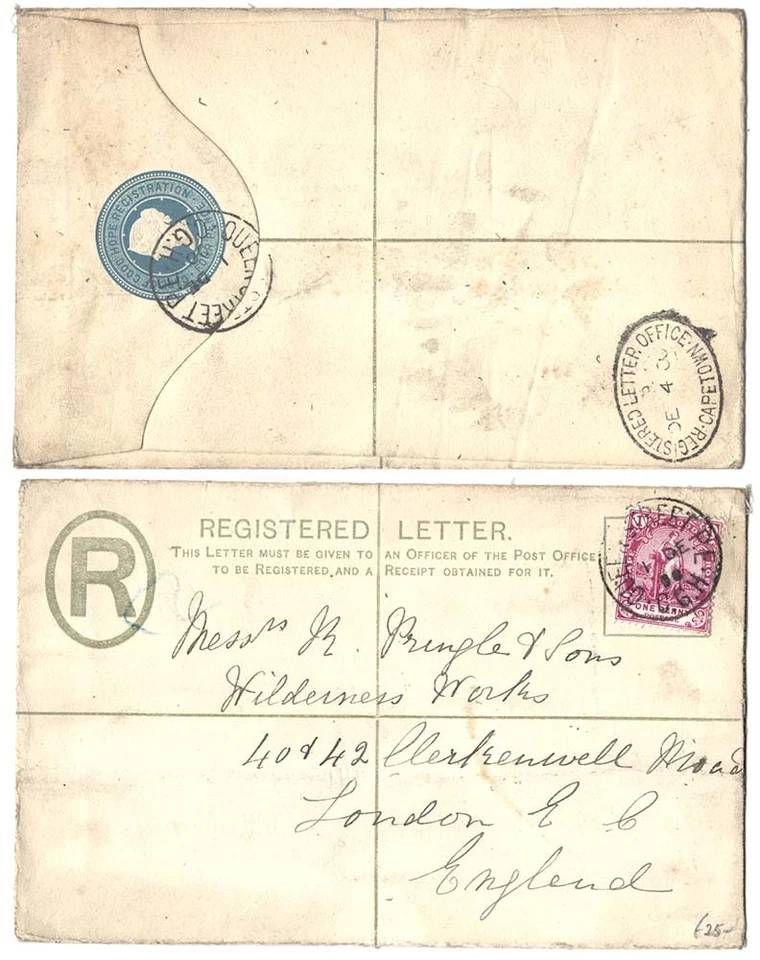 CAPE OF GOOD HOPE REGISTRATION
FOUR PENCE
QUEEN STREET
G.H
REGISTERED LETTER OFFICE · CAPETOWN
DE 4
REGISTERED LETTER.
THIS LETTER MUST BE GIVEN TO AN OFFICER OF THE POST OFFICE
TO BE REGISTERED, AND A RECEIPT OBTAINED FOR IT.
R
ONE PENNY
POSTAGE
DE
C.G.H
Messrs R. Pringle & Sons
Wilderness Works
40 & 42 Clerkenwell Road
London E C
England
£25-